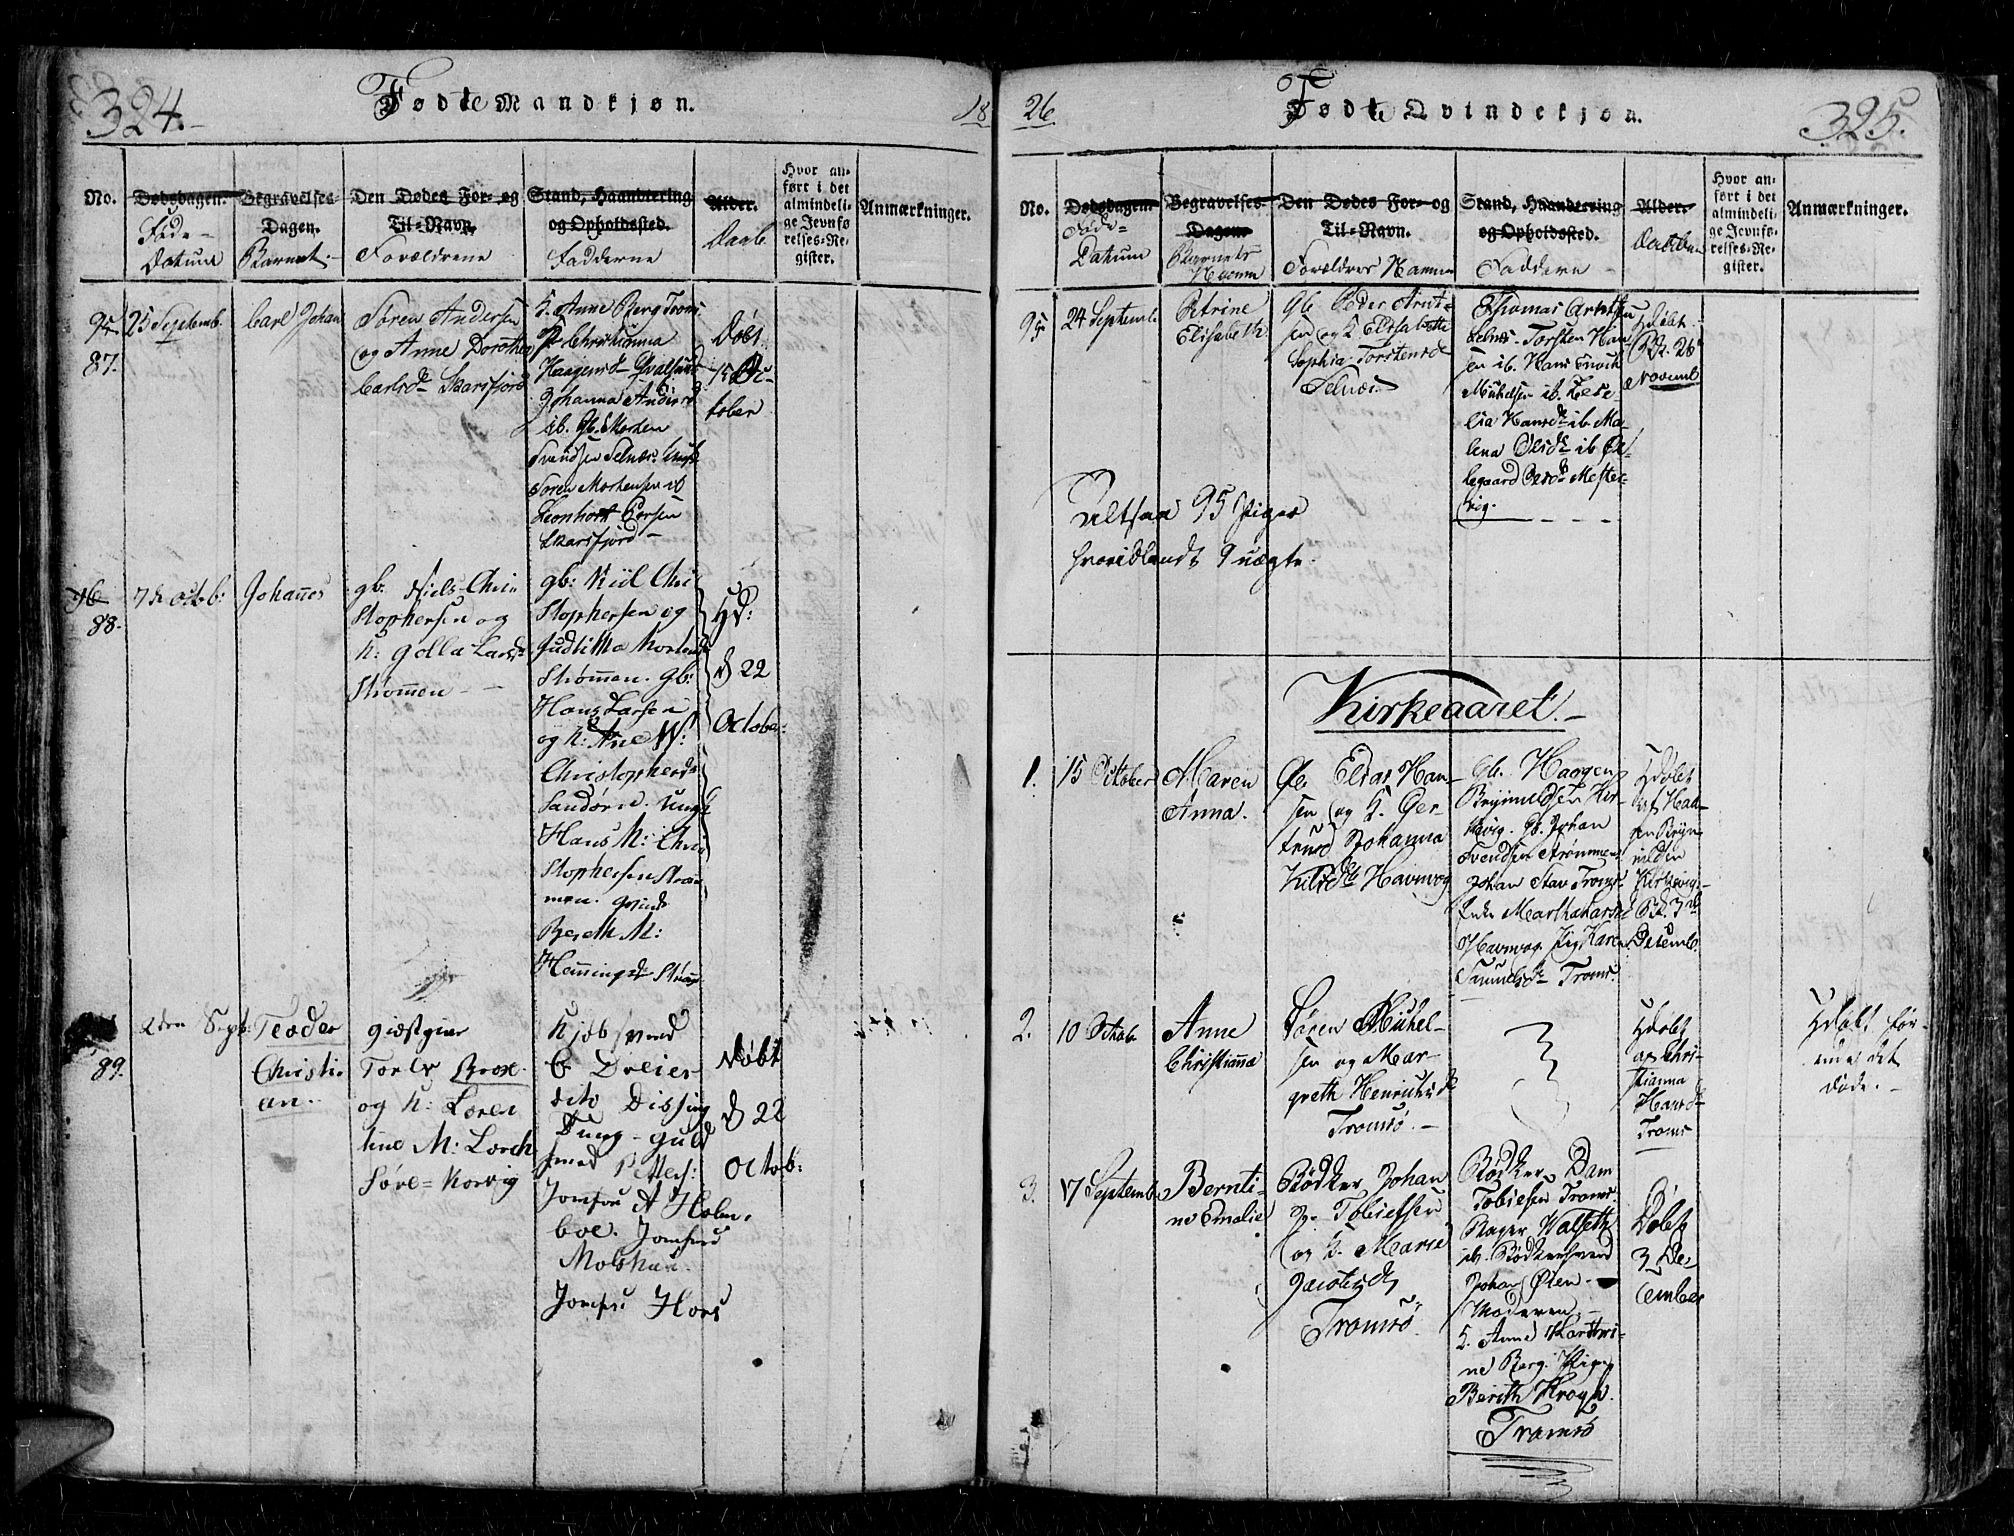 324.
Fødte Mandkjøn.
18
No.
Dødsdagen.
Føde-
Datum
Begravelses-
Dagen.
Barnet.
Den Dødes For- og
Til-Navn.
Forældrene
Stand, Haandtering
og Opholdssted.
Fadderne
Alder.
Daab
Hvor an-
ført i det
almindeli-
ge Jevnfø-
relses-Re-
gister.
Anmærkninger.
95
87.
25 Septemb.
Carl Johan
Sören Andersen
og Anne Dorothea
Carlsd. Skarsfjord
K. Anne Berg Troms
P. Christianna
Haagensd. Qvalsund
Johanna Andersd
ib. Gb. Morten
Svendsen Selnæs. Ungk
Sören Mortensen ib
Leonhort Corsen
Skarsfjord
Döbt
15 Oc-
tober
96
88.
7de Octob:
Johanes
gb. Niels Chri
stophersen og
K: Golla Larsd
Strømen
gb: Kiil Chri
stophersen og
Judlitha Mortensd
Strømen. gb:
Hans Larsen
og K: Ane W:
Christophersd
Sandörn. Ungk
Hans M: Chri
stophersen Strøm
men.
Bereth M:
Hemingsd Strøm
Hd:
d 22
October:
89.
2den Septb:
Teoder
Christi
an.
giæstgiver
Torlv Brox
og K: Loren
tine M: Lorch
Søre= Korvig
Kjøbsvend
C. Dreier
dito Dissing
Dung- Guld
smed Petters:
Jomfru A Holm
boe. Jomfrud
Jomfru Hors
Döbt
d 22
Octob:
26
Fødte Qvindekjøn.
325.
No.
Dødsdagen.
Føde-
Datum
Begravelses-
Dagen.
Barnets
Navn
Den Dødes For- og
Til-Navn.
Forældres Navne
Stand, Haandtering
og Opholdssted.
Faddere
Alder.
Daaben
Hvor an-
ført i det
almindeli-
ge Jevnfø-
relses-Re-
gister.
Anmærkninger.
95
24 Septemb
Petrine
Elisabeth
Gb. Peder Arnt-
sen og K Elisabeth
Sophia Torstensd
Selnæs
Thomas Arntsen
Selnæs. Torsten Han
sen ib. Hans Enoch
Michelsen ib. Cece-
lia Hansd ib. Ma-
lena Olsd ib Øl-
legaard Olsd Mester-
vig.
Hdöbt
Bk. 26
Novemb
Altsaa 95 Piger
hvoriblandt 9 uægte.
Kirkeaaret.
1.
15 October
Maren
Anna.
Gb. Elias Han-
sen og K. Ger-
trud Johanna
Kilsd Havnvog
Gb. Haagen
Brynnildsen Kir-
kevig. Gb. Johan
Svendsen Strømmen
Johan Stav Troms
Enke Martha Larsd
Havnvog Pig. Karen
Samuelsd Troms.
Hdöbt
af Haa-
gen Bryn-
nildsen
Kirkevig.
Bk. 3
Decemb.
2.
10 Octob.
Anne
Christianna
Sören Michel-
sen og Mar-
greth Henrichsd
Tromsö.
Hdöbt
af Chri-
stianna
Hansd
Troms
Hdöbt før-
end det
döde.
3.
17 Septemb
Bernti-
ne Emalie
Bödker Johan
Tobiessen
og K. Marie
Jacobsd
Tromsö.
Bödker Dam
Tobiesen Troms.
Bager Walseth
ib. Bödkersvend
Johan Öien.
Moderen
K. Anne Kathri-
ne Berg. Pige
Berith Krogh.
Tromsö
Döbt
3 De-
cember